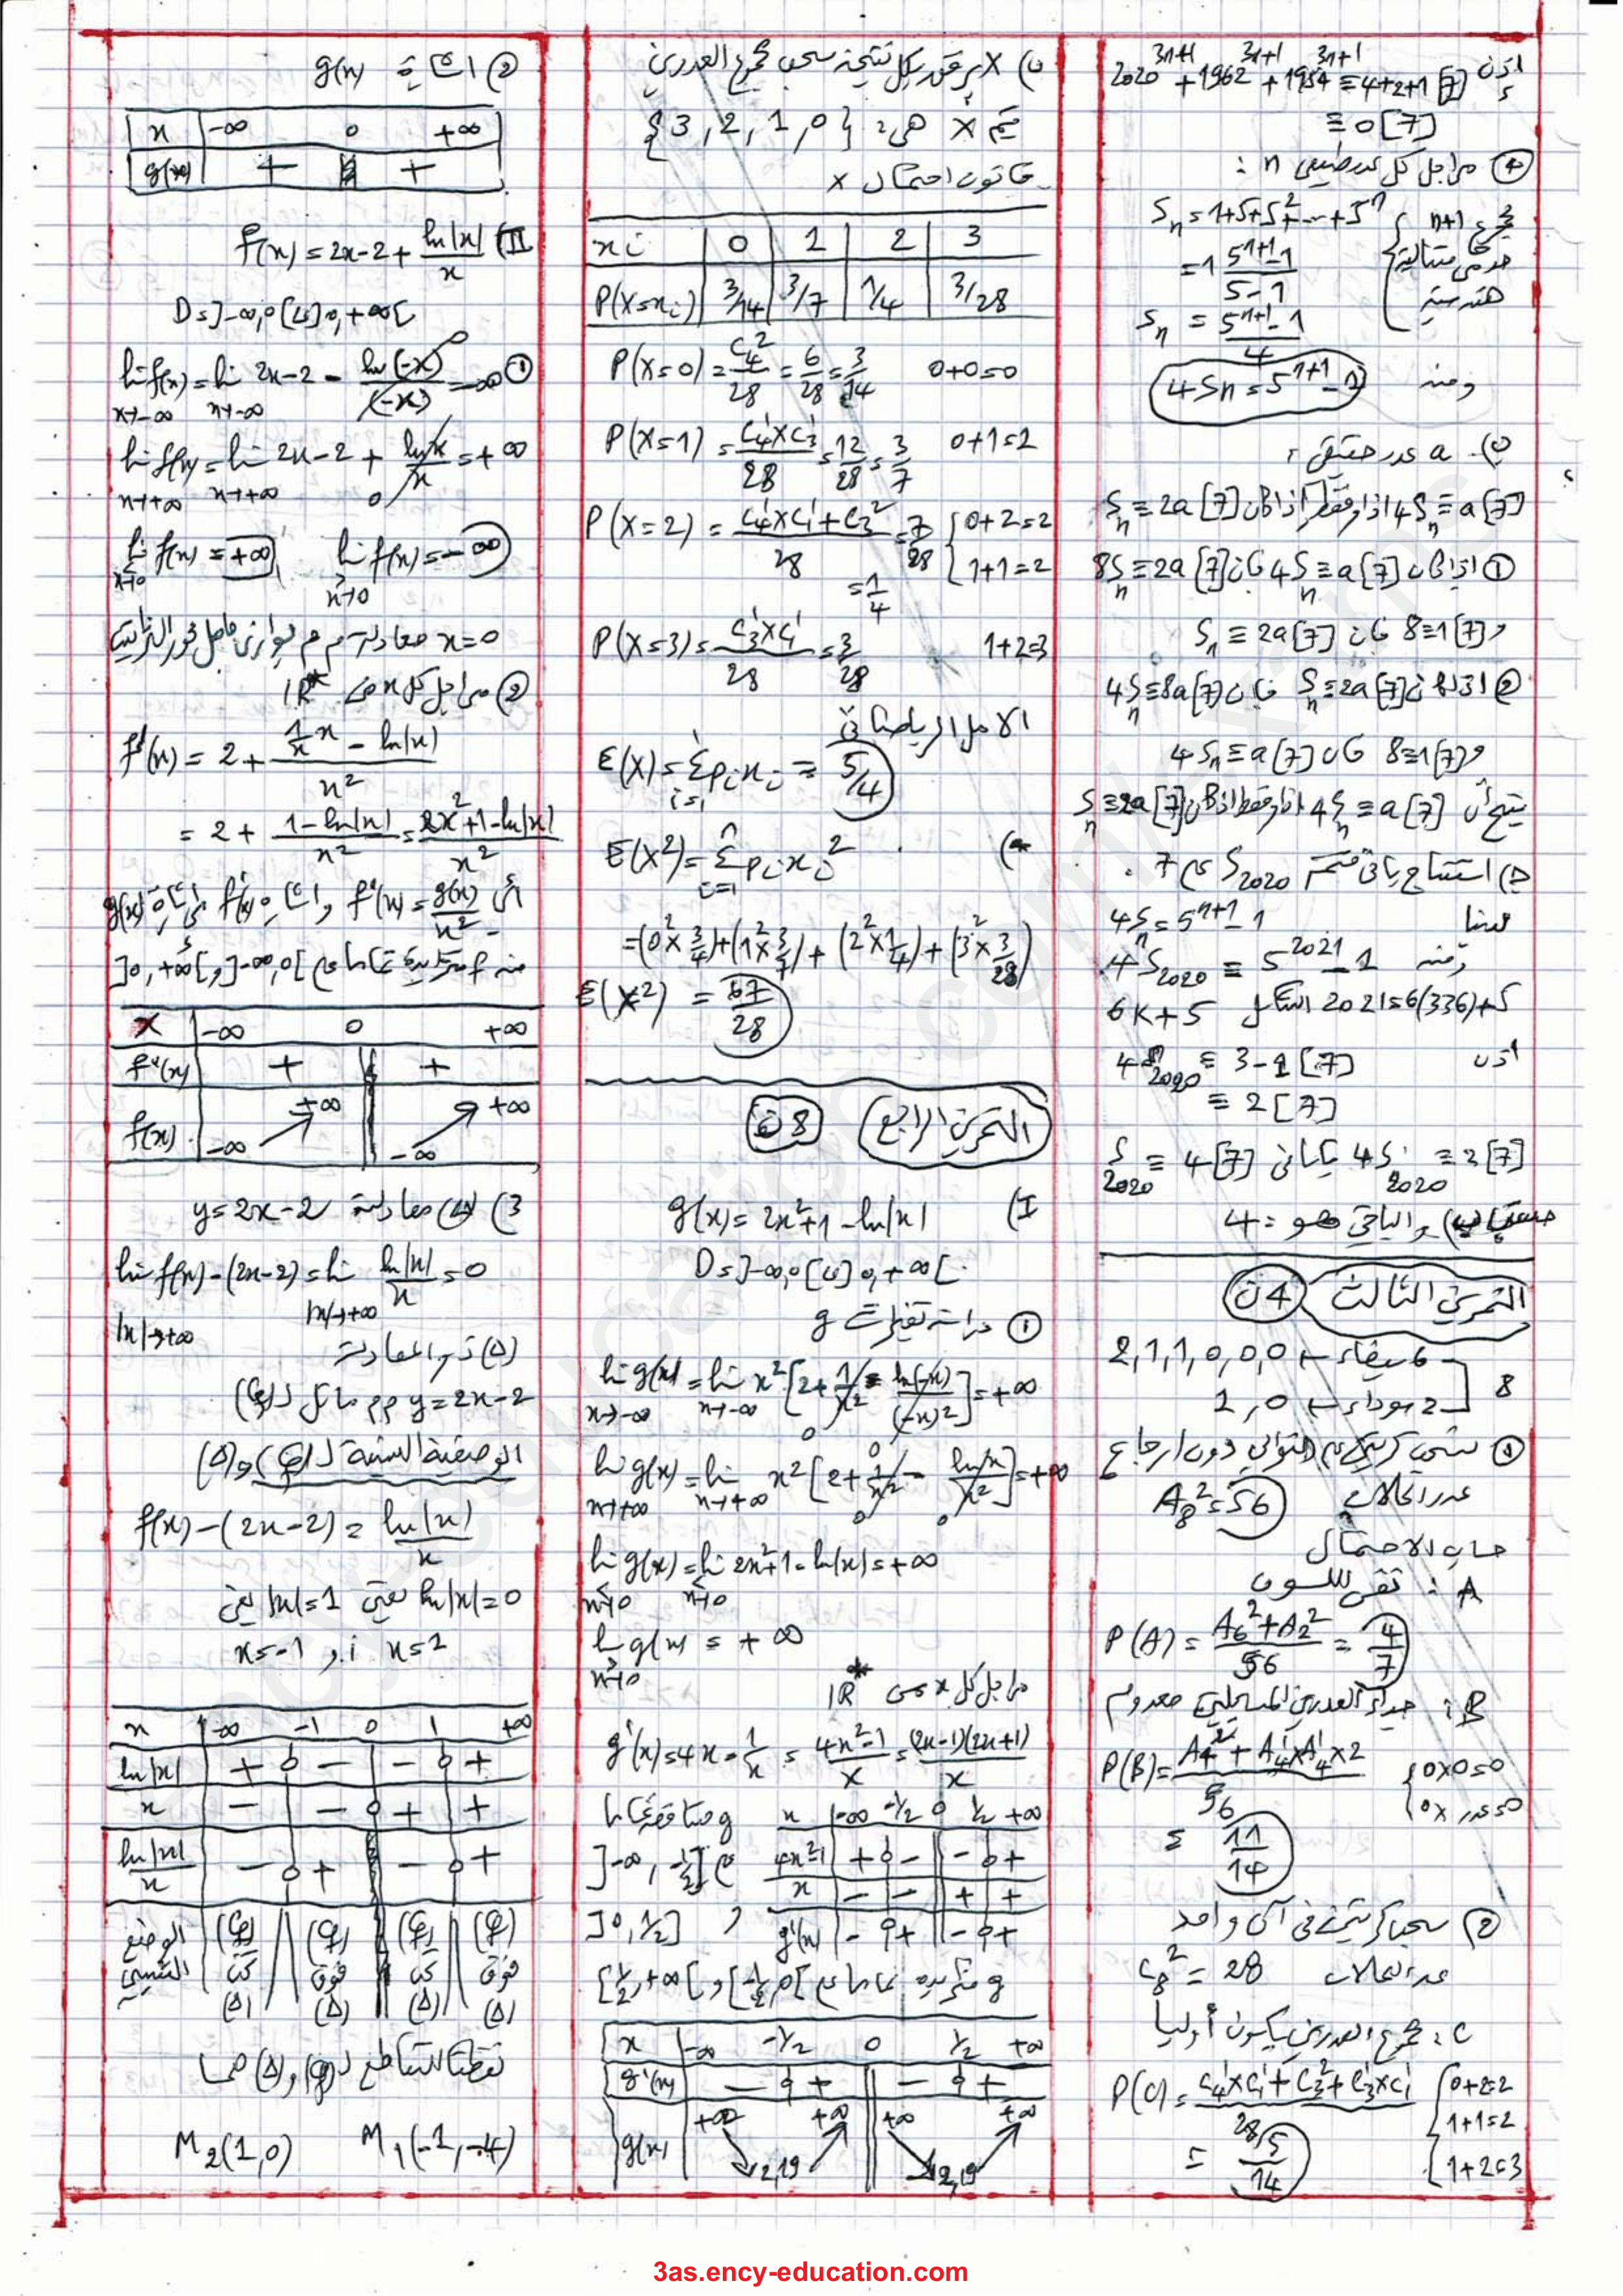 اذن 2020^{3n+1} + 1962^{3n+1} + 1954^{3n+1} ≡ 4+2+1 [7]
≡ 0 [7]
④ من اجل كل عدد طبيعي n :
S_n = 1+5+5^2+...+5^n
= 1 (5^{n+1}-1)/(5-1)
مجموع n+1 حد من متتالية هندسية
S_n = (5^{n+1}-1)/4
ومنه 4S_n = 5^{n+1}-1
ب) a عدد حقيقي :
4S_n ≡ a [7] اذا وفقط اذا كان S_n ≡ 2a [7]
① اذا كان 4S_n ≡ a [7] فإن 8S_n ≡ 2a [7]
و 8≡1 [7] فإن S_n ≡ 2a [7]
② اذا كان S_n ≡ 2a [7] فإن 4S_n ≡ 8a [7]
و 8≡1 [7] فإن 4S_n ≡ a [7]
ينتج أن 4S_n ≡ a [7] اذا وفقط اذا كان S_n ≡ 2a [7]
ج) استنتاج باقي قسمة S_2020 على 7 .
لدينا 4S_n = 5^{n+1}-1
ومنه 4S_2020 ≡ 5^{2021}-1
2021=6(336)+5 الشكل 6K+5
اذن 4S_2020 ≡ 3-1 [7]
≡ 2 [7]
4S_2020 ≡ 2 [7] يكافئ S_2020 ≡ 4 [7]
حسب (ب) والباقي هو : 4
التمرين الثالث 4ن
8
6 بيضاء ← 2,1,1,0,0,0
2 سوداء ← 1,0
① سحب كريتين على التوالي دون ارجاع
عدد الحالات A_8^2 = 56
حساب الاحتمال
A : نفس اللون
P(A) = (A_6^2+A_2^2)/56 = 4/7
B : جداء العددين المسجلين معدوم
P(B) = (A_4^2 + A_4^1×A_4^1×2)/56
0×0=0
0×عدد=0
= 11/14
② سحب كريتين في آن واحد
عدد الحالات C_8^2 = 28
C : مجموع العددين يكون أوليا
P(C) = (C_4^1×C_1^1+C_3^2+C_3^1×C_1^1)/28
0+2=2
1+1=2
1+2=3
= 5/14
ب) X يرفق بكل نتيجة سحب مجموع العددين
قيم X هي : {3,2,1,0}
قانون احتمال X
xi 0 1 2 3
P(X=xi) 3/14 3/7 1/4 3/28
P(X=0) = C_4^2/28 = 6/28 = 3/14 0+0=0
P(X=1) = (C_4^1×C_3^1)/28 = 12/28 = 3/7 0+1=1
P(X=2) = (C_4^1×C_1^1+C_3^2)/28 = 7/28
0+2=2
1+1=2
= 1/4
P(X=3) = (C_3^1×C_1^1)/28 = 3/28 1+2=3
الامل الرياضياتي
E(X) = Σ p_i x_i = 5/4
E(X^2) = Σ p_i x_i^2
= (0^2×3/4)+(1^2×3/7)+(2^2×1/4)+(3^2×3/28)
E(X^2) = 67/28
التمرين الرابع 8ن
I) g(x) = 2x^2+1-ln|x|
D=]-∞,0[∪]0,+∞[
① دراسة تغيرات g
lim_{x→-∞} g(x) = lim_{x→-∞} x^2[2+1/x^2-ln(-x)/(-x)^2] = +∞
lim_{x→+∞} g(x) = lim_{x→+∞} x^2[2+1/x^2-ln x/x^2] = +∞
lim_{x→0} g(x) = lim_{x→0} 2x^2+1-ln|x| = +∞
lim_{x→0} g(x) = +∞
من اجل كل x من ℝ*
g'(x) = 4x-1/x = (4x^2-1)/x = (2x-1)(2x+1)/x
x -∞ -1/2 0 1/2 +∞
4x^2-1 + 0 - - 0 +
x - - + +
g'(x) - 0 + - 0 +
g متناقصة تماما
على ]-∞,-1/2]
و ]0,1/2]
g متزايدة تماما على [-1/2,0[ و [1/2,+∞[
x -∞ -1/2 0 1/2 +∞
g'(x) - 0 + - 0 +
g(x) +∞ 2,19 +∞ +∞ 2,19 +∞
② اشارة g(x)
x -∞ 0 +∞
g(x) + +
II) f(x) = 2x-2+ln|x|/x
D=]-∞,0[∪]0,+∞[
① lim_{x→-∞} f(x) = lim_{x→-∞} 2x-2-ln(-x)/(-x) = -∞
lim_{x→+∞} f(x) = lim_{x→+∞} 2x-2+ln x/x = +∞
lim_{x→0} f(x) = +∞ , lim_{x→0} f(x) = -∞
x=0 معادلة م م يوازي حامل محور التراتيب
② من اجل كل x من ℝ*
f'(x) = 2+(1/x x-ln|x|)/x^2
= 2+(1-ln|x|)/x^2 = (2x^2+1-ln|x|)/x^2
أي f'(x) = g(x)/x^2 واشارة f'(x) من اشارة g(x)
منه f متزايدة تماما على ]-∞,0[ و ]0,+∞[
x -∞ 0 +∞
f'(x) + +
f(x) -∞ +∞ -∞ +∞
3) (Δ) معادلة y=2x-2
lim_{|x|→+∞} f(x)-(2x-2) = lim_{|x|→+∞} ln|x|/x = 0
(Δ) ذو المعادلة
y=2x-2 م م مائل لـ (Cf)
الوضعية النسبية لـ (Cf) و (Δ)
f(x)-(2x-2) = ln|x|/x
ln|x|=0 يعني |x|=1 يعني
x=1 أو x=-1
x -∞ -1 0 1 +∞
ln|x| + 0 - - 0 +
x - - 0 + +
ln|x|/x - 0 + - 0 +
الوضع النسبي (Cf) تحت (Δ) (Cf) فوق (Δ) (Cf) تحت (Δ) (Cf) فوق (Δ)
نقطتا التقاطع لـ (Cf) و (Δ) هما
M_2(1,0) M_1(-1,-4)
3as.ency-education.com